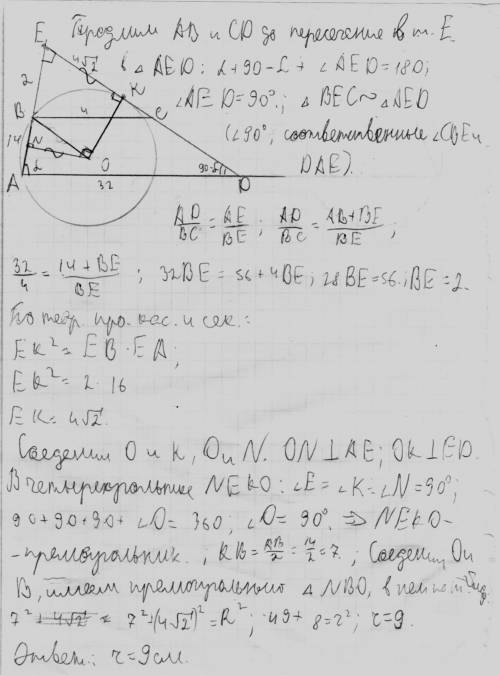 Продлим AB и CD до пересечения в т. E.
в △ AED: α+90-α+∠AED=180;
∠AED=90°.; △ BEC∾△AED
(∠90°, соответственные ∠CBE и
DAE).
E
4√2
2
K
B
4
C
14
N
A
α
O
32
90-α
D
AD/BC = AE/BE ; AD/BC = AB+BE/BE ;
32/4 = 14+BE/BE ; 32BE=56+4BE; 28BE=56.; BE=2.
По теор. про кас. и сек.:
EK²=EB·EA;
EK²=2·16
EK=4√2
Соединим O и K, O и N. ON⊥AE; OK⊥ED.
В четырехугольнике NEKO: ∠E=∠K=∠N=90°;
90+90+90+∠O=360; ∠O=90° ⇒ NEKO-
-прямоугольник. ; RB=AB/2=14/2=7. ; Соединим O и
B, имеем прямоугольный △ NBO, в нем по т. Пиф.
7²+4√2 = 7²+(4√2)²=R²; 49+ 8=r²; r=9.
Ответ: r=9см.